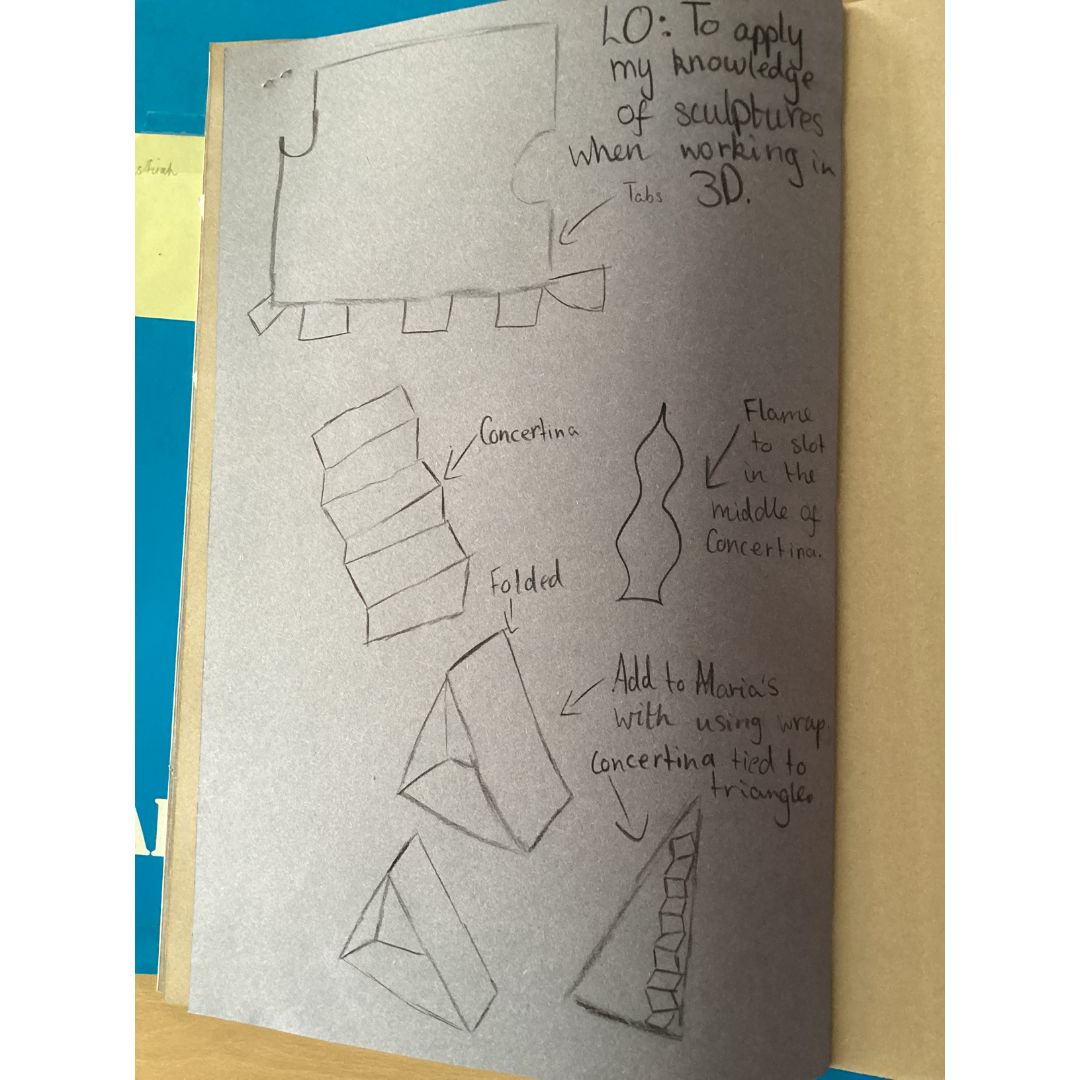 LO: To apply
my knowledge
of sculptures
when working in
3D.
Tabs
Concertina
Flame
to slot
in the
middle of
Concertina.
Folded
Add to Maria's
with using wrap.
Concertina tied to
triangle.